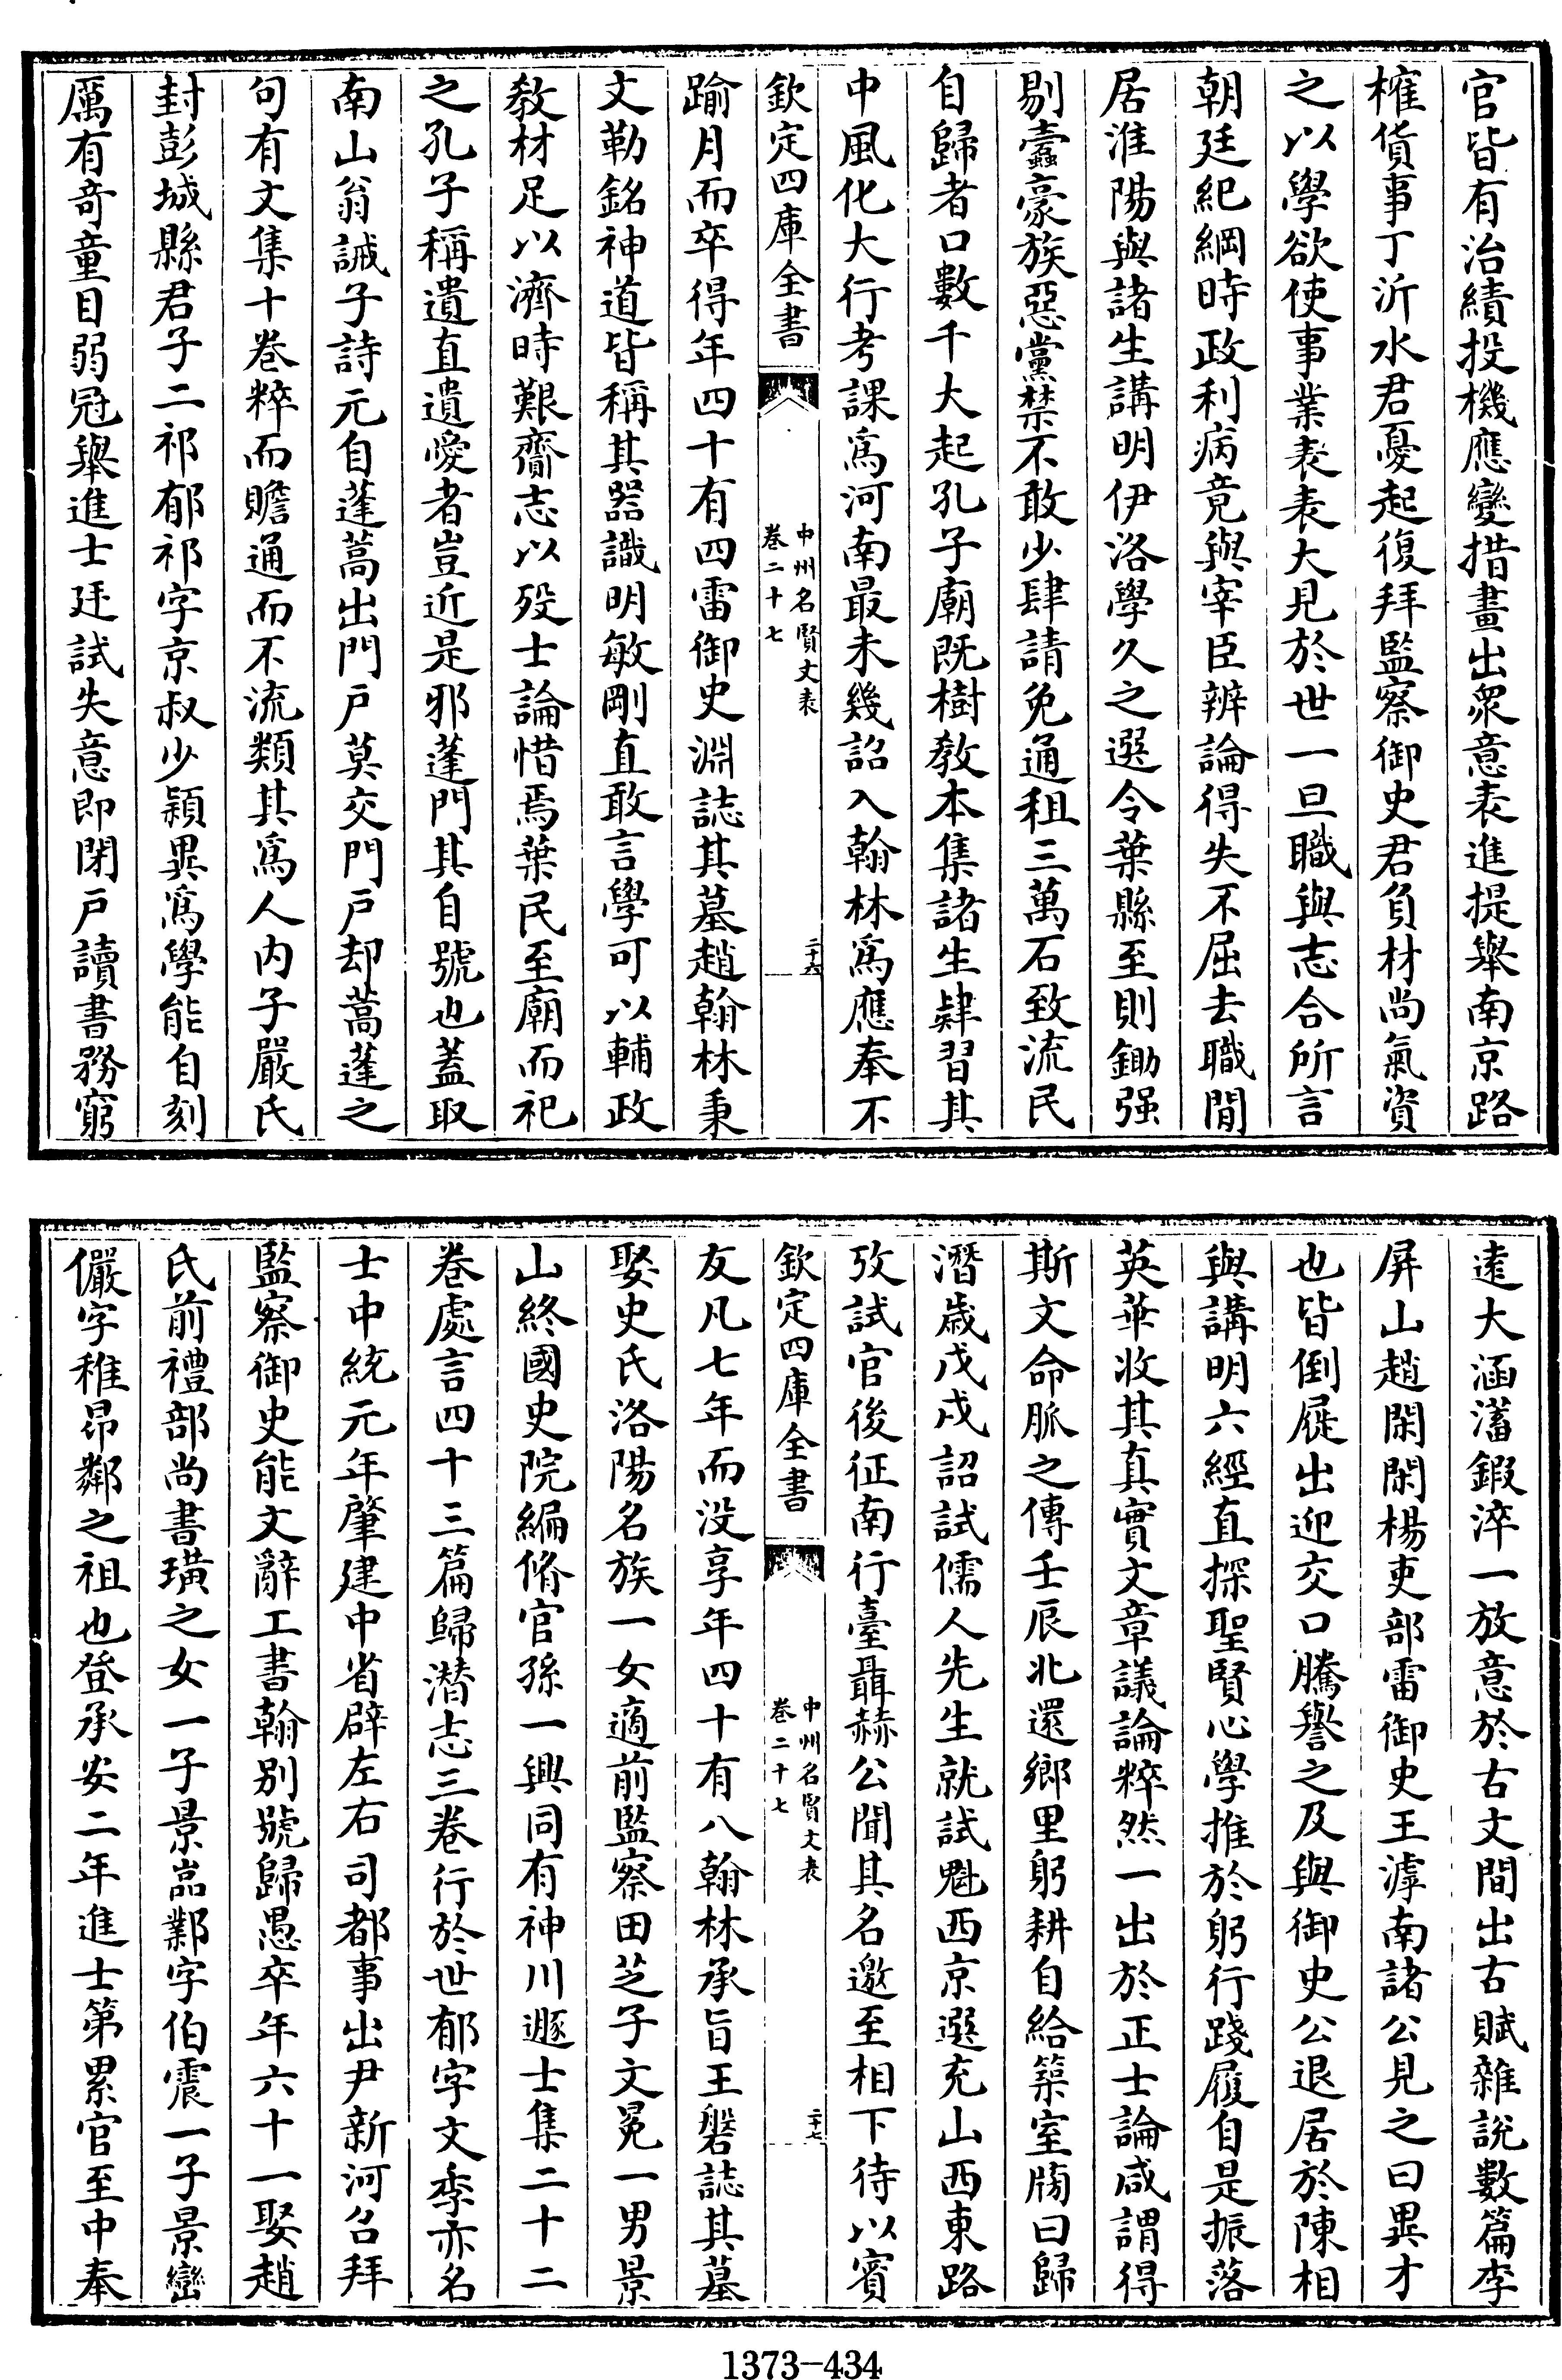 官皆有治績投機應變措畫出衆意表進提舉南京路
榷貨事丁沂水君憂起復拜監察御史君負材尚氣資
之以學欲使事業表表大見於世一旦職與志合所言
朝廷紀綱時政利病竟與宰臣辨論得失不屈去職閒
居淮陽與諸生講明伊洛學久之選令葉縣至則鋤强
剔蠹豪族惡黨禁不敢少肆請免通租三萬石致流民
自歸者口數千大起孔子廟既樹教本集諸生肄習其
中風化大行考課爲河南最未幾詔入翰林爲應奉不
欽定四庫全書
中州名賢文表
卷二十七
二十六
踰月而卒得年四十有四雷御史淵誌其墓趙翰林秉
文勒銘神道皆稱其器識明敏剛直敢言學可以輔政
教材足以濟時艱齎志以歿士論惜焉葉民至廟而祀
之孔子稱遺直遺愛者豈近是邪蓬門其自號也蓋取
南山翁誡子詩元自蓬蒿出門户莫交門户却蒿蓬之
句有文集十卷粹而贍通而不流類其爲人内子嚴氏
封彭城縣君子二祁郁祁字京叔少穎異爲學能自刻
厲有奇童目弱冠舉進士廷試失意即閉户讀書務窮
遠大涵濡鍛淬一放意於古文間出古賦雜說數篇李
屏山趙閑閑楊吏部雷御史王滹南諸公見之曰異才
也皆倒屣出迎交口騰譽之及與御史公退居於陳相
與講明六經直探聖賢心學推於躬行踐履自是振落
英華收其真實文章議論粹然一出於正士論咸謂得
斯文命脈之傳壬辰北還鄉里躬耕自給築室牓曰歸
潛歲戊戌詔試儒人先生就試魁西京選充山西東路
攷試官後征南行臺聶赫公聞其名邀至相下待以賓
欽定四庫全書
中州名賢文表
卷二十七
二十七
友凡七年而没享年四十有八翰林承旨王磐誌其墓
娶史氏洛陽名族一女適前監察田芝子文冕一男景
山終國史院編脩官孫一興同有神川遯士集二十二
卷處言四十三篇歸潛志三卷行於世郁字文季亦名
士中統元年肇建中省辟左右司都事出尹新河召拜
監察御史能文辭工書翰别號歸愚卒年六十一娶趙
氏前禮部尚書璜之女一子景嵓鄴字伯震一子景巒
儼字稚昂鄰之祖也登承安二年進士第累官至中奉
1373-434